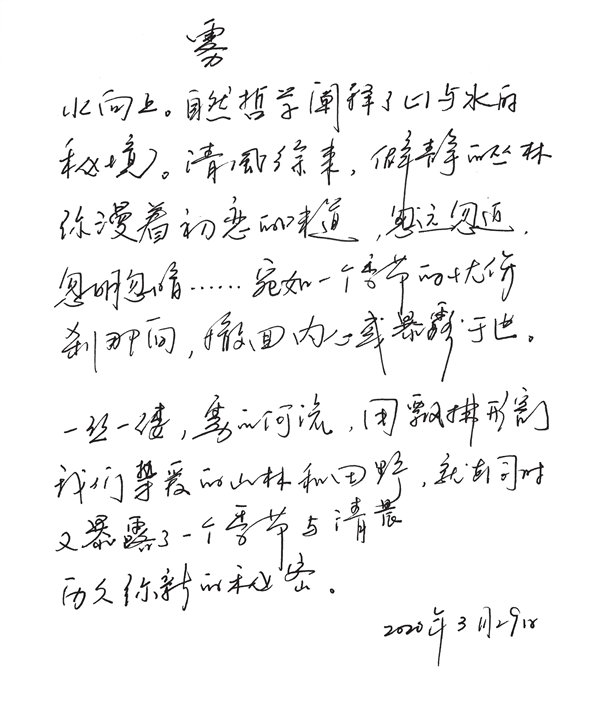 雾
水向上。自然哲学阐释了山与水的
秘境。清风徐来，僻静的丛林
弥漫着初恋的味道，忽远忽近，
忽明忽暗……宛如一个季节的忧伤
刹那间，撤回内心或暴露于世。
一丝一缕，雾的河流，用飘拂形割
我们挚爱的山林和田野，就在同时
又暴露了一个季节与清晨
历久弥新的秘密。
2020年3月29日